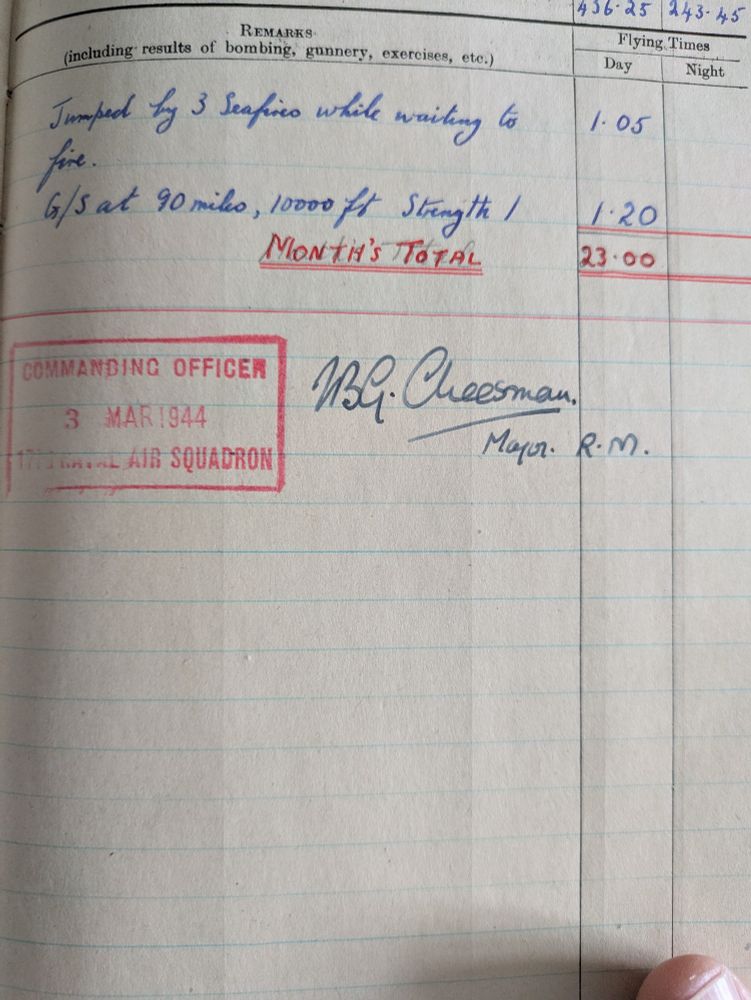 436·25 243·45
REMARKS
(including results of bombing, gunnery, exercises, etc.)
Flying Times
Day Night
Jumped by 3 Seafires while waiting to 1·05
fire.
G/S at 90 miles, 10000 ft Strength 1 1·20
MONTH'S TOTAL 23·00
COMMANDING OFFICER
3 MAR 1944
NAVAL AIR SQUADRON
Cheesman.
Major. R.M.